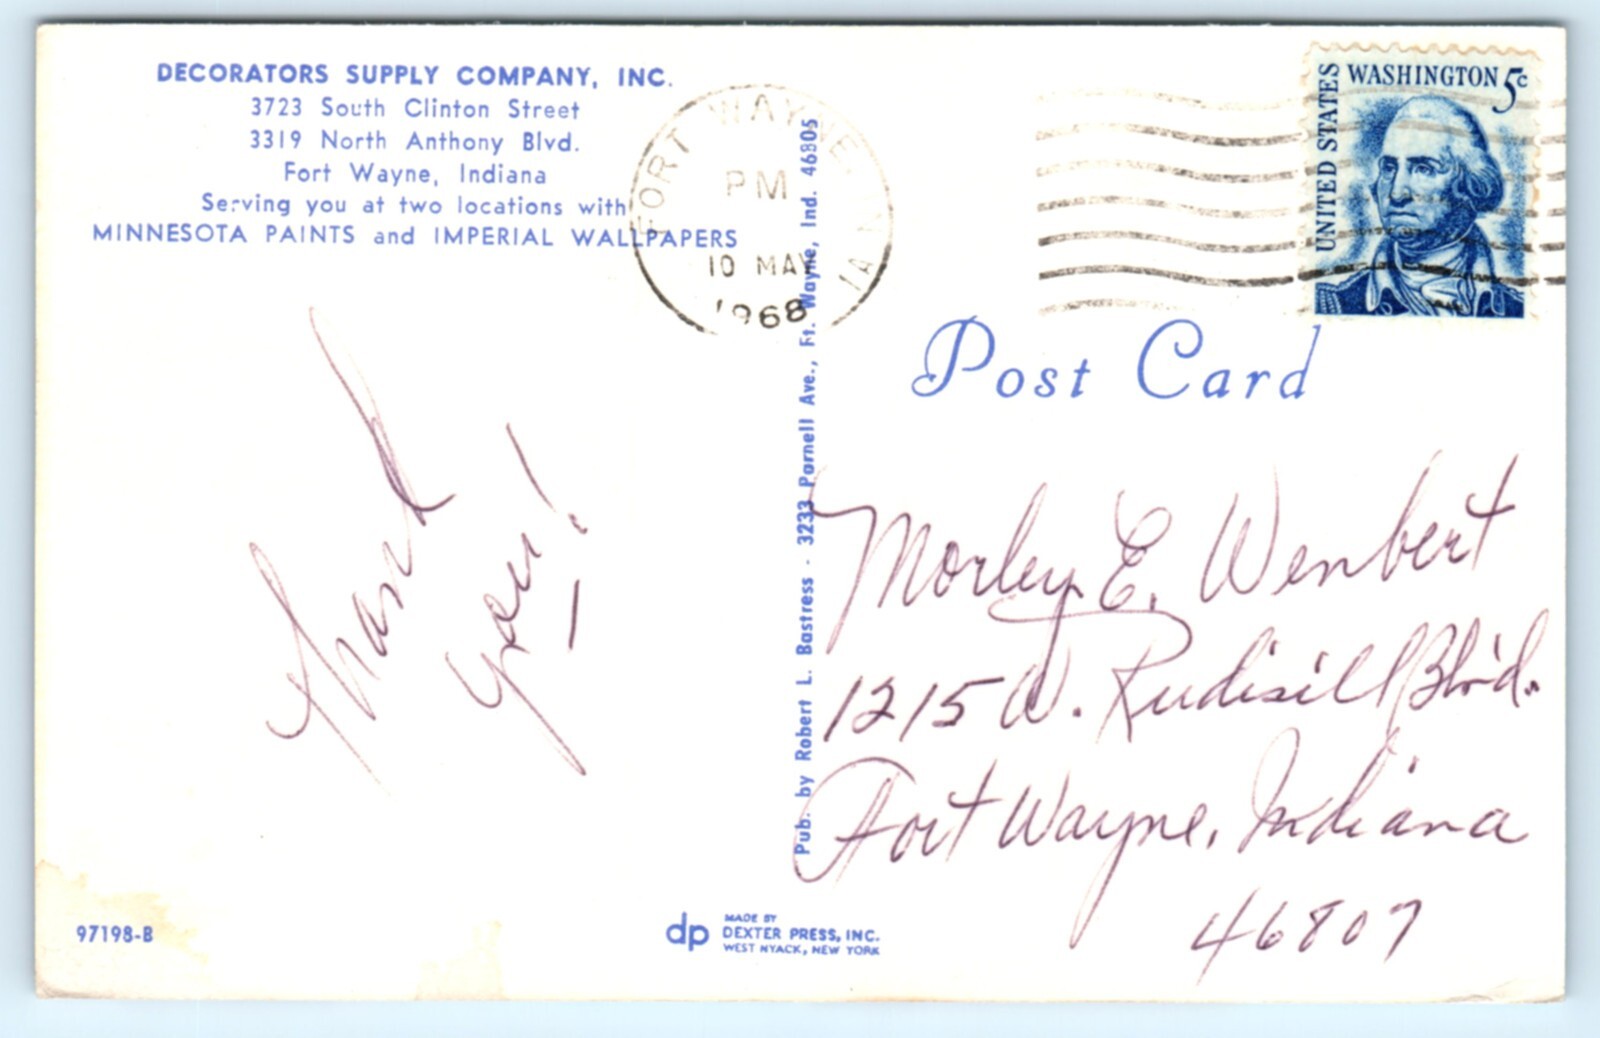 DECORATORS SUPPLY COMPANY, INC.
3723 South Clinton Street
3319 North Anthony Blvd.
Fort Wayne, Indiana
Serving you at two locations with
MINNESOTA PAINTS and IMPERIAL WALLPAPERS
FORT WAYNE, IN
PM
10 MAY
1968
UNITED STATES
WASHINGTON 5c
Post Card
Thank
you!
Pub. by Robert L. Bastress - 3233 Parnell Ave., Ft. Wayne, Ind. 46805
Morley E. Wenbert
1215 W. Rudisill Blvd.
Fort Wayne, Indiana
46807
97198-B
dp
MADE BY
DEXTER PRESS, INC.
WEST NYACK, NEW YORK